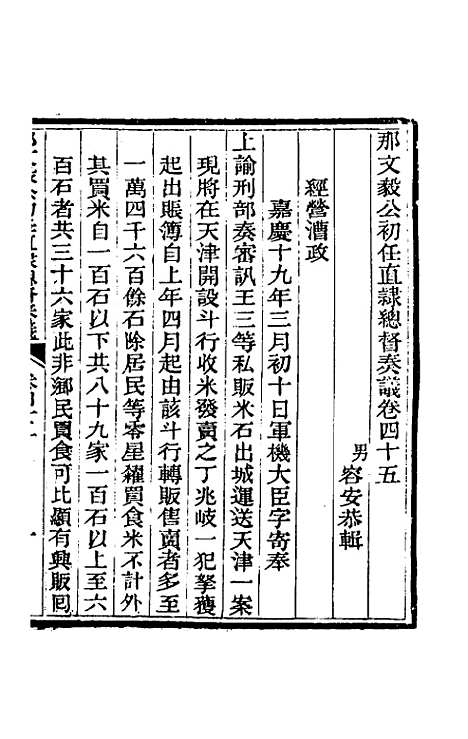 那文毅公初任直隸總督奏議卷四十五
男容安恭輯
經營漕政
嘉慶十九年三月初十日軍機大臣字寄奉
上諭刑部奏審訊王三等私販米石出城運送天津一案
現將在天津開設斗行收米發賣之丁兆岐一犯拏獲
起出賬簿自上年四月起由該斗行轉販售賣者多至
一萬四千六百餘石除居民等零星糴買食米不計外
其買米自一百石以下共八十九家一百石以上至六
百石者共三十六家此非鄉民買食可比顯有興販囘